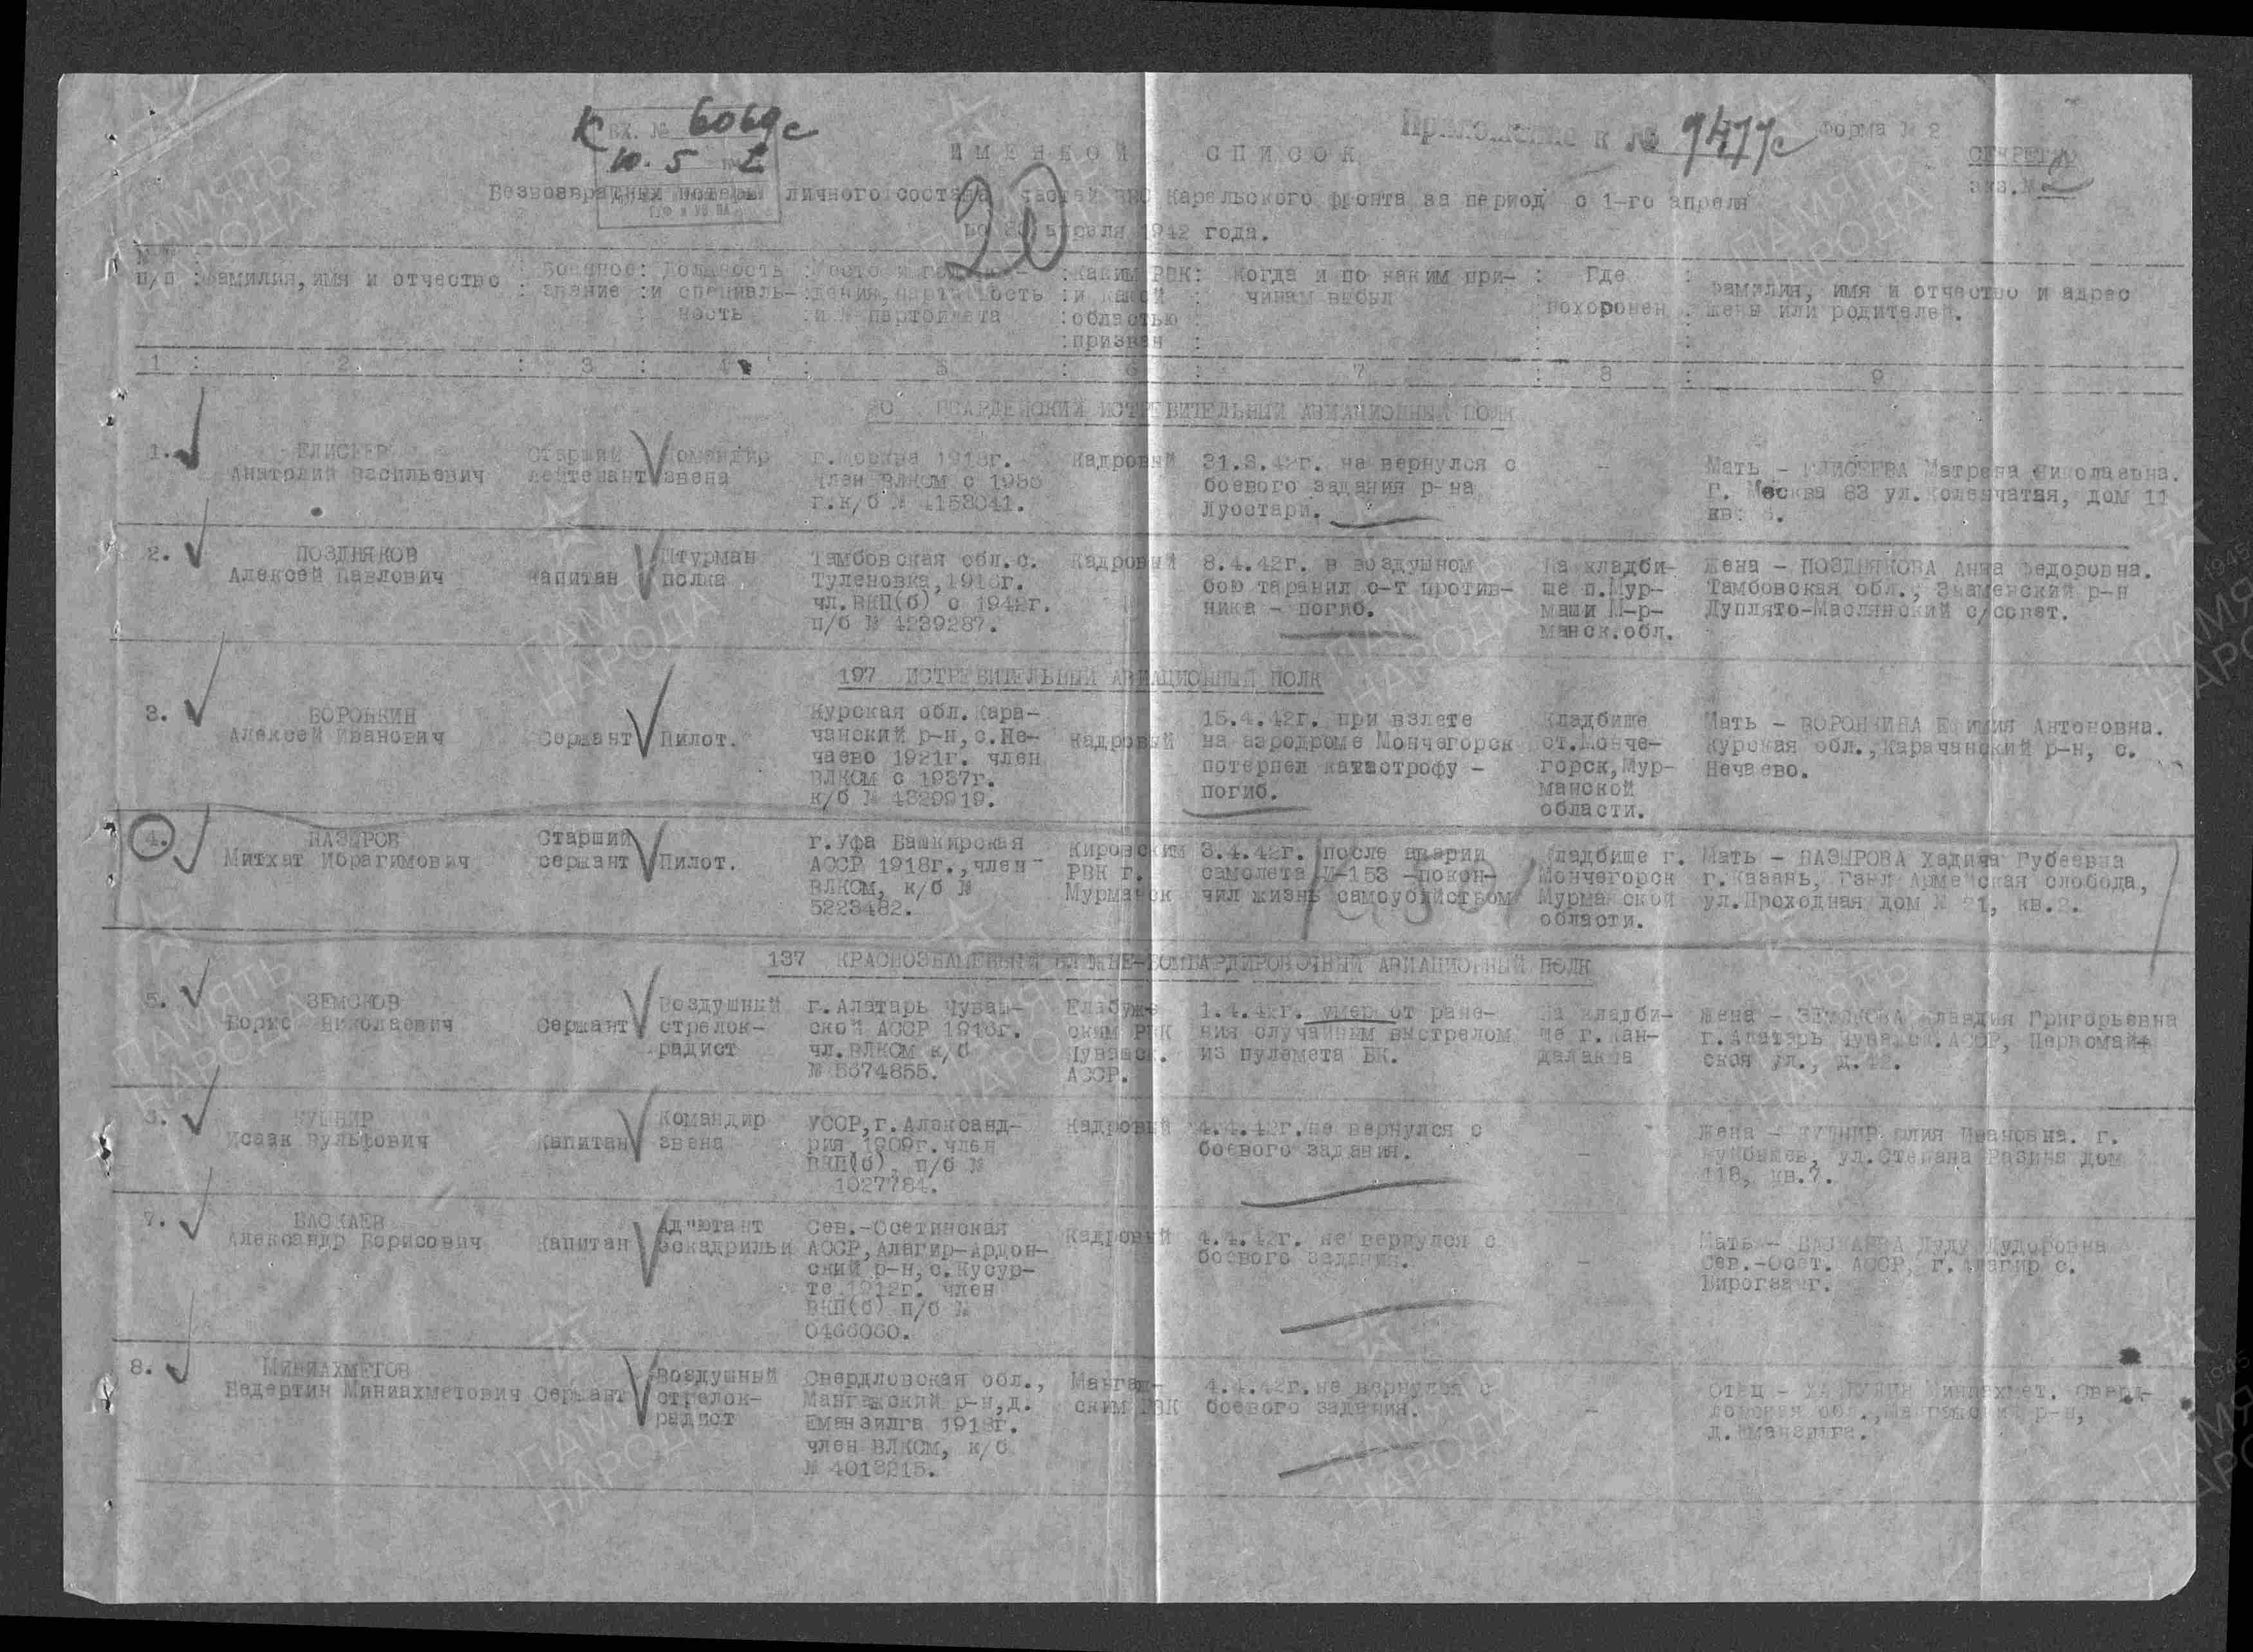 К Вх. № 6069с
10. 5
Приложение к № 9477с
Форма № 2
СЕКРЕТНО
экз.№ 2
ИМЕННОЙ СПИСОК
20
Безвозвратных потерь личного состава частей ВВС Карельского фронта за период с 1-го апреля
по 30 апреля 1942 года.
№№ п/п : Фамилия, имя и отчество : Военное звание : Должность и специаль-ность : партийность и № партбилета : Каким РВК и какой областью призван : Когда и по каким при-чинам выбыл : Где похоронен : Фамилия, имя и отчество и адрес жены или родителей.
1 : 2 : 3 : 4 : 5 : 6 : 7 : 8 : 9
ГВАРДЕЙСКИЙ ИСТРЕБИТЕЛЬНЫЙ АВИАЦИОННЫЙ ПОЛК
1. ЕЛИСЕЕВ Старший Командир г.Москва 1918г. Кадровый 31.3.42г. не вернулся с - Мать - ЕЛИСЕЕВА Матрена Николаевна.
Анатолий Васильевич лейтенант звена член ВЛКСМ с 1936 боевого задания р-на Г. Москва 83 ул.Коленчатая, дом 11
г.к/б № 4153041. Луостари. кв.
2. ПОЗДНЯКОВ Штурман Тамбовская обл.с. Кадровый 8.4.42г. в воздушном На кладби- Жена - ПОЗДНЯКОВА Анна Федоровна.
Алексей Павлович Капитан полка Туленовка, бою таранил с-т против- ще п.Мур- Тамбовская обл., Знаменский р-н
чл.ВКП(б) с 1942г. ника - погиб. маши М-р- Дуплято-Маслянский с/совет.
п/б № 4239287. манск.обл.
197 ИСТРЕБИТЕЛЬНЫЙ АВИАЦИОННЫЙ ПОЛК
3. ВОРОНКИН Курская обл.Кара- 15.4.42г. при взлете Кладбище Мать - ВОРОНКИНА Антоновна.
Алексей Иванович Сержант Пилот. чанский р-н, с.Не- Кадровый на аэродроме Мончегорск ст.Монче- Курская обл., Карачанский р-н, с.
чаево 1921г. член потерпел катастрофу - горск, Мур- Нечаево.
ВЛКСМ с 1937г. погиб. манской
к/б № 4829919. области.
4. НАЗЫРОВ Старший г.Уфа Башкирская Кировским 3.4.42г. после аварии Кладбище г. Мать - НАЗЫРОВА Хадича Губеевна
Митхат Ибрагимович сержант Пилот. АССР 1918г., член РВК г. самолета И-153 -покон- Мончегорск г.Казань, слобода,
ВЛКСМ, к/б № Мурманск чил жизнь самоубийством Мурманской ул.Проходная дом № 21, кв.2.
5223482. области.
137 КРАСНОЗНАМЕННЫЙ БЛИЖНЕ-БОМБАРДИРОВОЧНЫЙ АВИАЦИОННЫЙ ПОЛК
5. ЗЕМСКОВ Воздушный г.Алатарь Чуваш- Елабуж- 1.4.42г. умер от ране- На кладби- Жена - ЗЕМСКОВА Клавдия Григорьевна
Борис Николаевич Сержант стрелок- ской АССР 1918г. ским РВК ния случайным выстрелом ще г.Кан- г.Алатарь Чувашск.АССР, Первомай-
радист чл.ВЛКСМ к/б Чувашск. из пулемета БК. далакша ская ул., д.42.
№ 5674855. АССР.
6. КУШНИР Командир УССР, г.Александ- Кадровый 4.4.42г.не вернулся с Жена - КУШНИР Юлия Ивановна. г.
Исаак Вульфович Капитан звена рия 1909г.член боевого задания. - Куйбышев, ул.Степана Разина дом
ВКП(б) п/б № 118, кв.7.
1027784.
7. БАСКАЕВ Ад"ютант Сев.-Осетинская Кадровый 4.4.42г. не вернулся с Мать - БАСКАЕВА Дуду
Александр Борисович Капитан эскадрильи АССР, Алагир-Ардон- боевого задания. - Сев.-Осет. АССР, г.Алагир с.
ский р-н, с.Кусур- Бирогзанг.
те 1912г. член
ВКП(б) п/б №
0466060.
8. МИНИАХМЕТОВ Воздушный Свердловская обл., 4.4.42г.не вернулся с Отец - Миниахмет. Сверд-
Недертин Миниахметович Сержант стрелок- р-н, д. ским РВК боевого задания. - ловская обл., р-н,
радист Еманзилга 1918г. д.Еманзилга.
член ВЛКСМ, к/б
№ 4013215.
ПАМЯТЬ НАРОДА